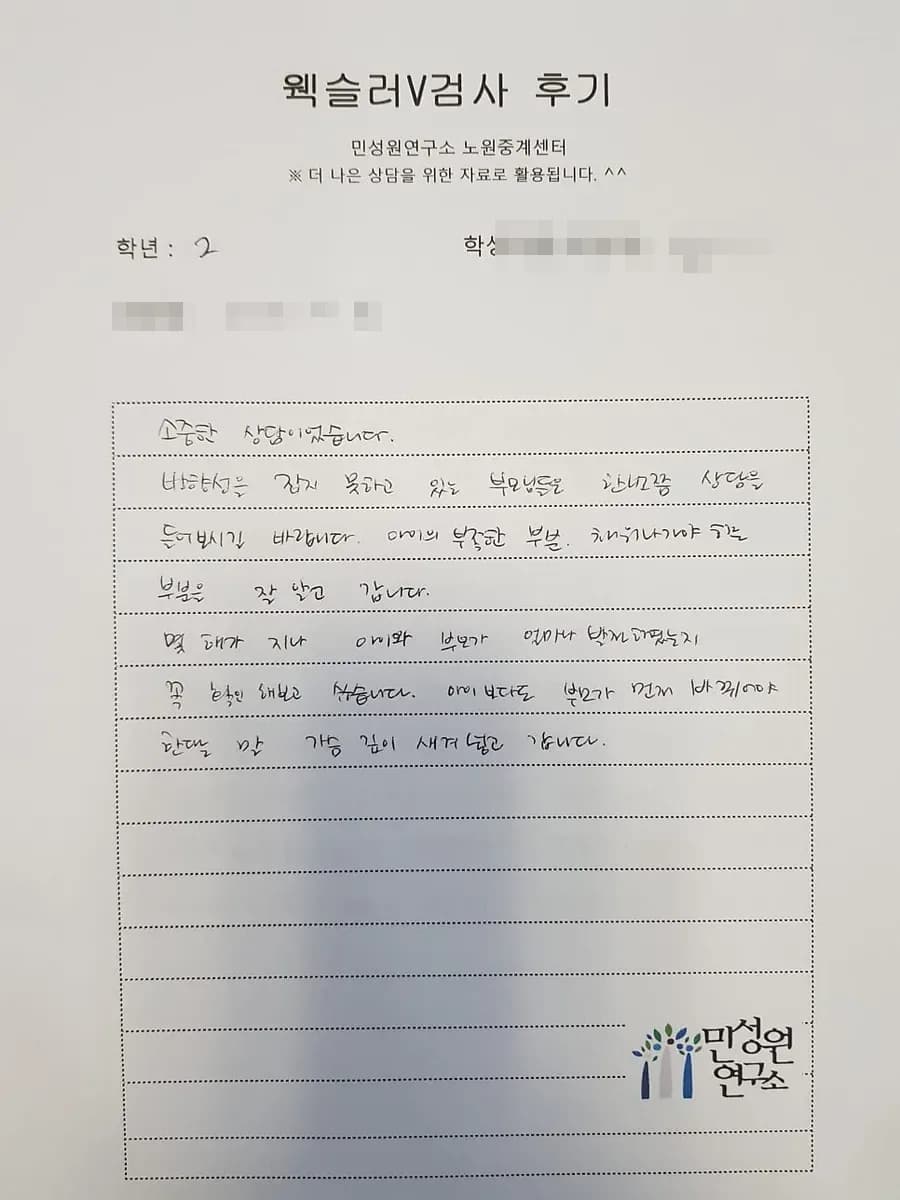 웩슬러V검사 후기
민성원연구소 노원중계센터
※ 더 나은 상담을 위한 자료로 활용됩니다. ^^
학년 : 2
소중한 상담이었습니다.
방향성을 잡지 못하고 있는 부모님들은 한번쯤 상담을
들어보시길 바랍니다. 아이의 부족한 부분. 채워나가야 하는
부분을 잘 알고 갑니다.
몇 해가 지나 아이와 부모가 얼마나 발전하였는지
꼭 확인해보고 싶습니다. 아이보다도 부모가 먼저 바뀌어야
한다는 말 가슴 깊이 새겨 듣고 갑니다.
민성원
연구소